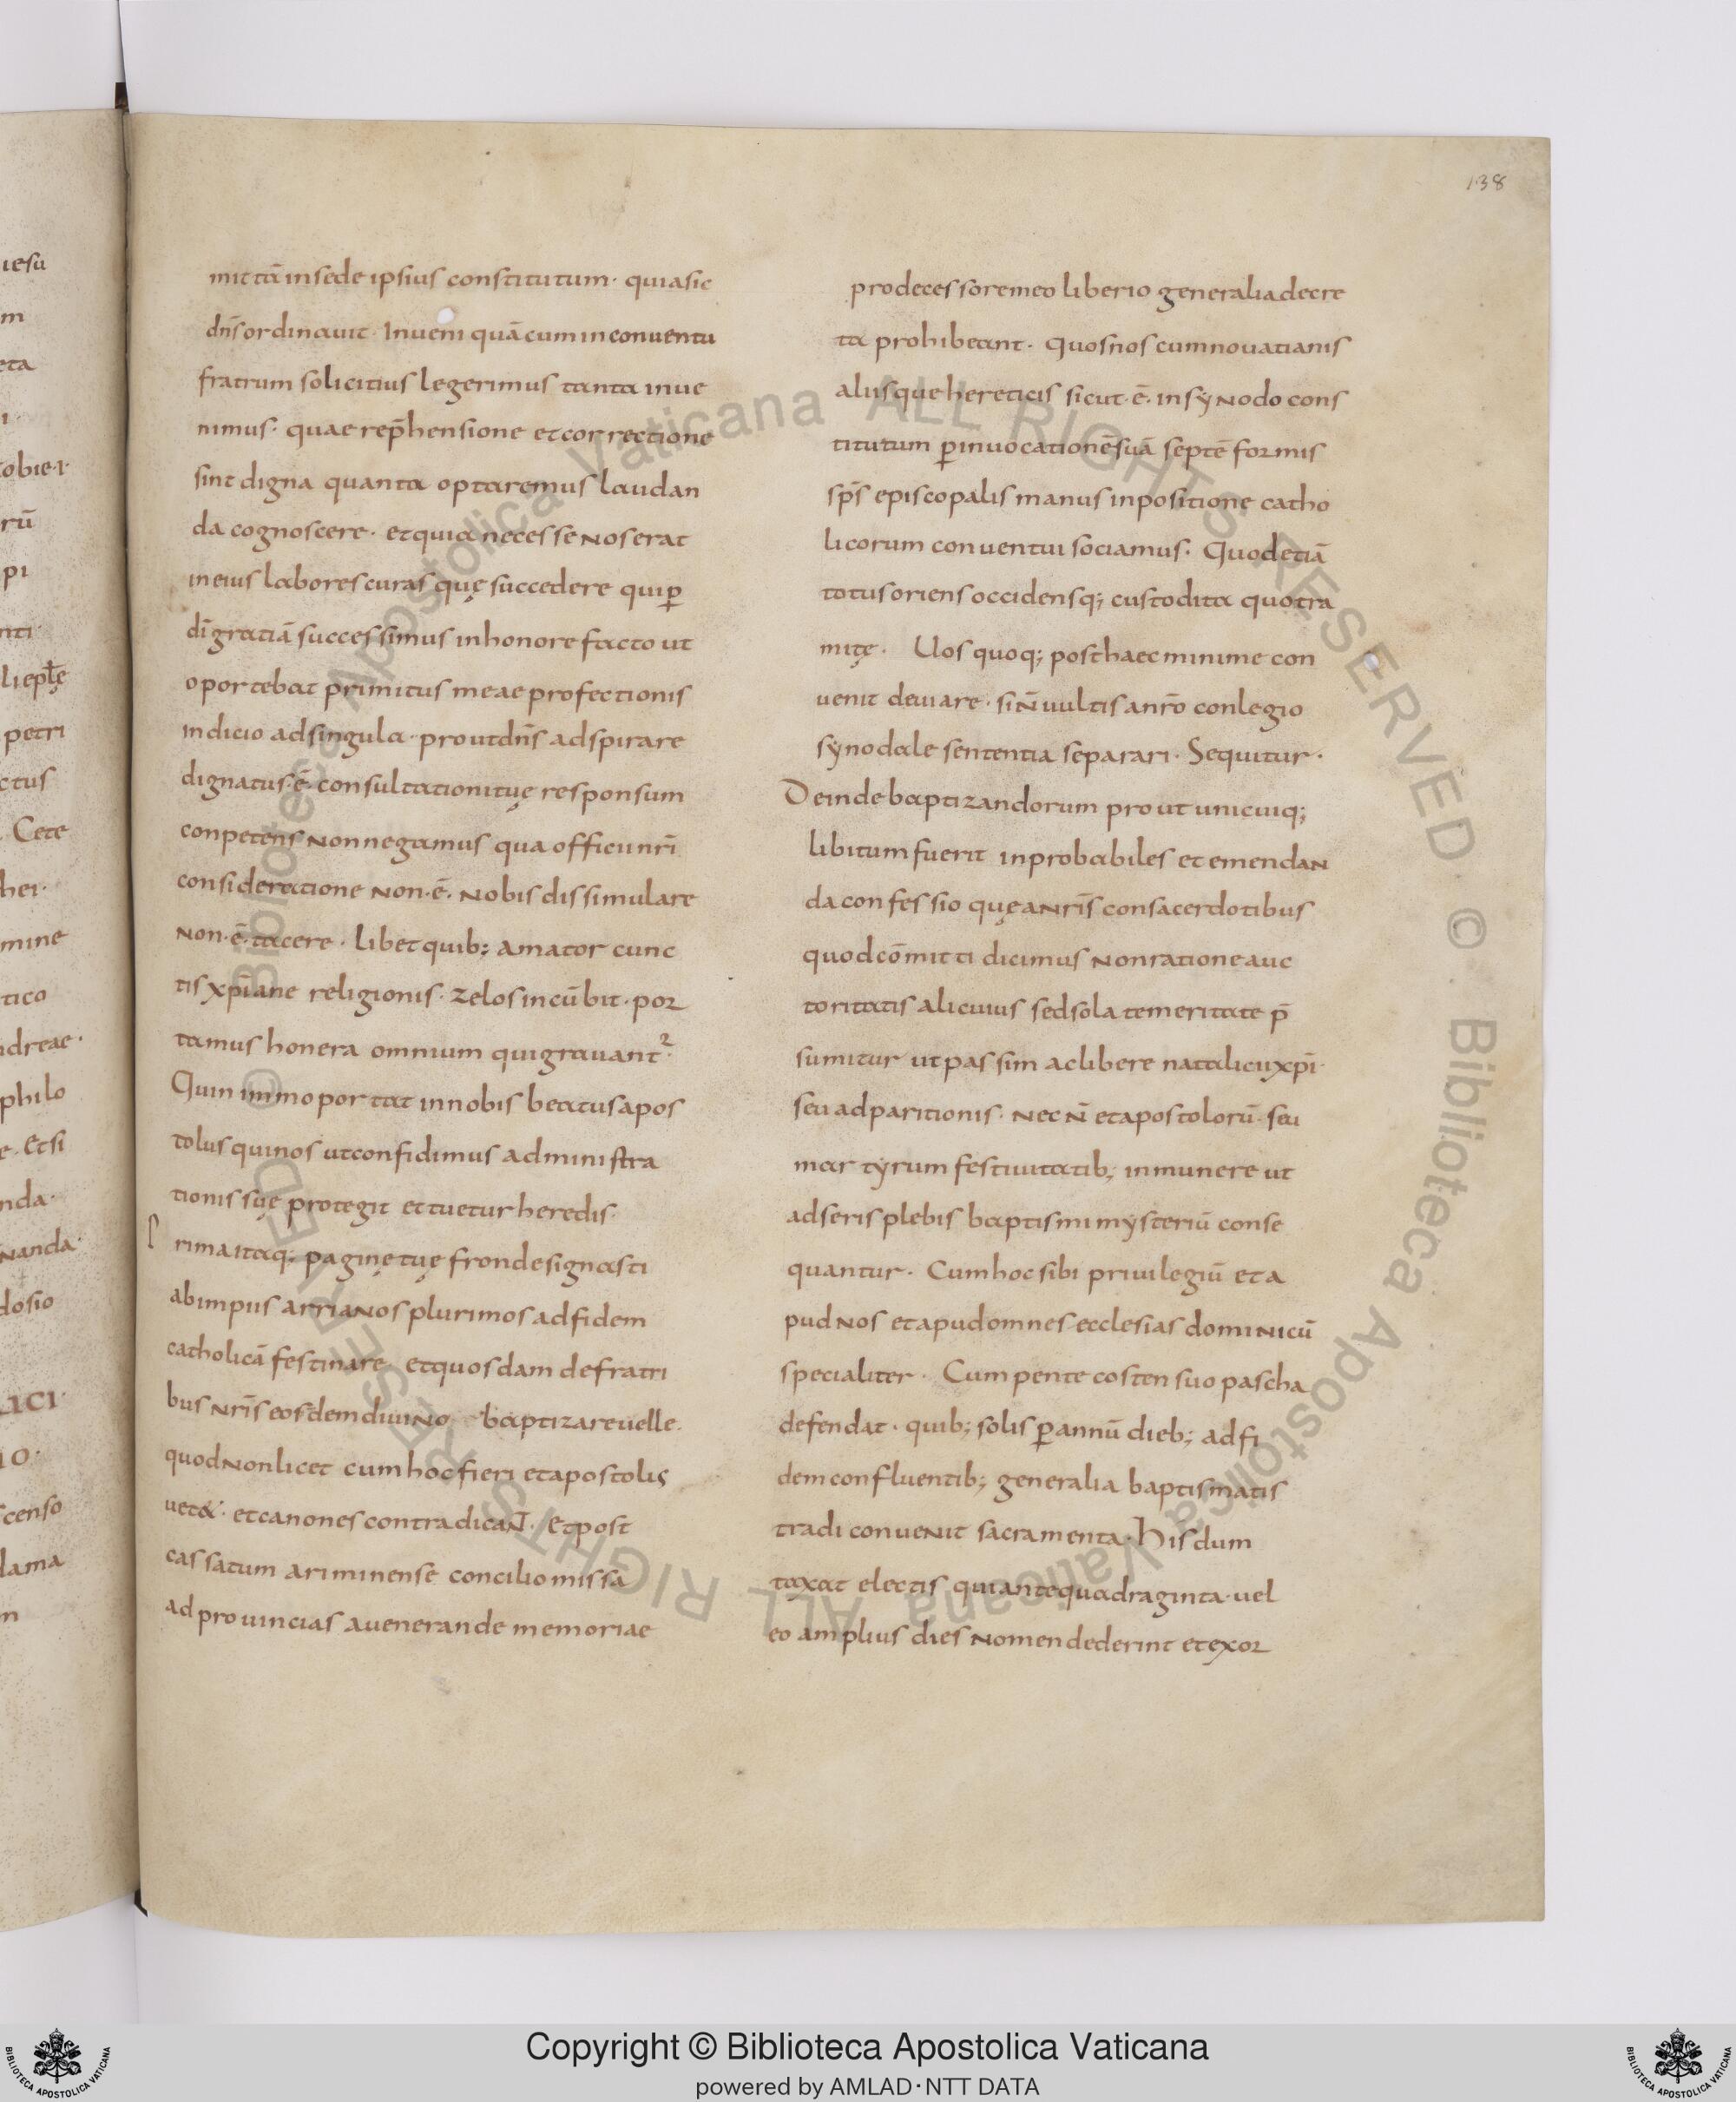 138
mittā in sede ipsius constitutum · quia sic
dn̄s ordinavit · Inveni quā cum in conventu
fratrum solicitius legerimus tanta inve
nimus · quae rep̄hensione et correctione
sint digna quanta optaremus laudan
da cognoscere · et quia necesse nos erat
in eius labores curas quę succedere qui ꝑ
dī gratiā successimus in honore facto ut
oportebat primitus meae profectionis
indicio ad singula · prout dn̄s adspirare
dignatus · ē · consultationi tuę responsum
conpetens non negamus qua officii nr̄i
consideratione non · ē · nobis dissimulare
non · ē · tacere · libet quib; amator cunc
tis xp̄iane religionis · zelos incūbit · por
tamus honera omnium qui gravant² ·
Quin immo portat in nobis beatus apos
tolus qui nos ut confidimus administra
tionis suę protegit et tuetur heredis ·
rima itaq; paginę tuę fronde signasti
ab impiis arrianos plurimos ad fidem
catholicā festinare · et quosdam de fratri
bus nr̄is eosdem divino baptizare velle ·
quod non licet cum hoc fieri et apostolis
vet& · et canones contradicaN̄ · Et post
cassatum ariminense concilio missa
ad provincias a venerande memoriae
prodecessore meo liberio generalia decre
ta prohibeant · quos nos cum novatianis
aliisque hereticis sicut · ē · in synodo cons
titutum ꝑ invocationē suā septē formis
sp̄s episcopalis manus inpositione catho
licorum conventui sociamus · Quod etiā
totus oriens occidensq; custodita quo tra
mitę · Vos quoq; post haec minime con
venit deviare · si n̄ vultis a nr̄o conlegio
synodale sententia separari · Sequitur ·
Deinde baptizandorum prout unicuiq;
libitum fuerit inprobabiles et emendan
da confessio quę a nr̄is consacerdotibus
quod cōmitti dicimus non ratione auc
toritatis alicuius sed sola temeritate p̄
sumitur ut passim ac libere natalicii xp̄i ·
seu adparitionis · nec n̄ et apostolorū · seu
martyrum festivitatib; in munere ut
adseris plebis baptismi mysteriū conse
quantur · Cum hoc sibi privilegiū et a
pud nos et apud omnes ecclesias dominicū
specialiter · Cum pentecosten suo pascha
defendat · quib; solis ꝑ annū dieb; ad fi
dem confluentib; generalia baptismatis
tradi convenit sacramenta · His dum
taxat electis qui ante quadraginta · vel
eo amplius dies nomen dederint et exor
Copyright © Biblioteca Apostolica Vaticana
powered by AMLAD·NTT DATA